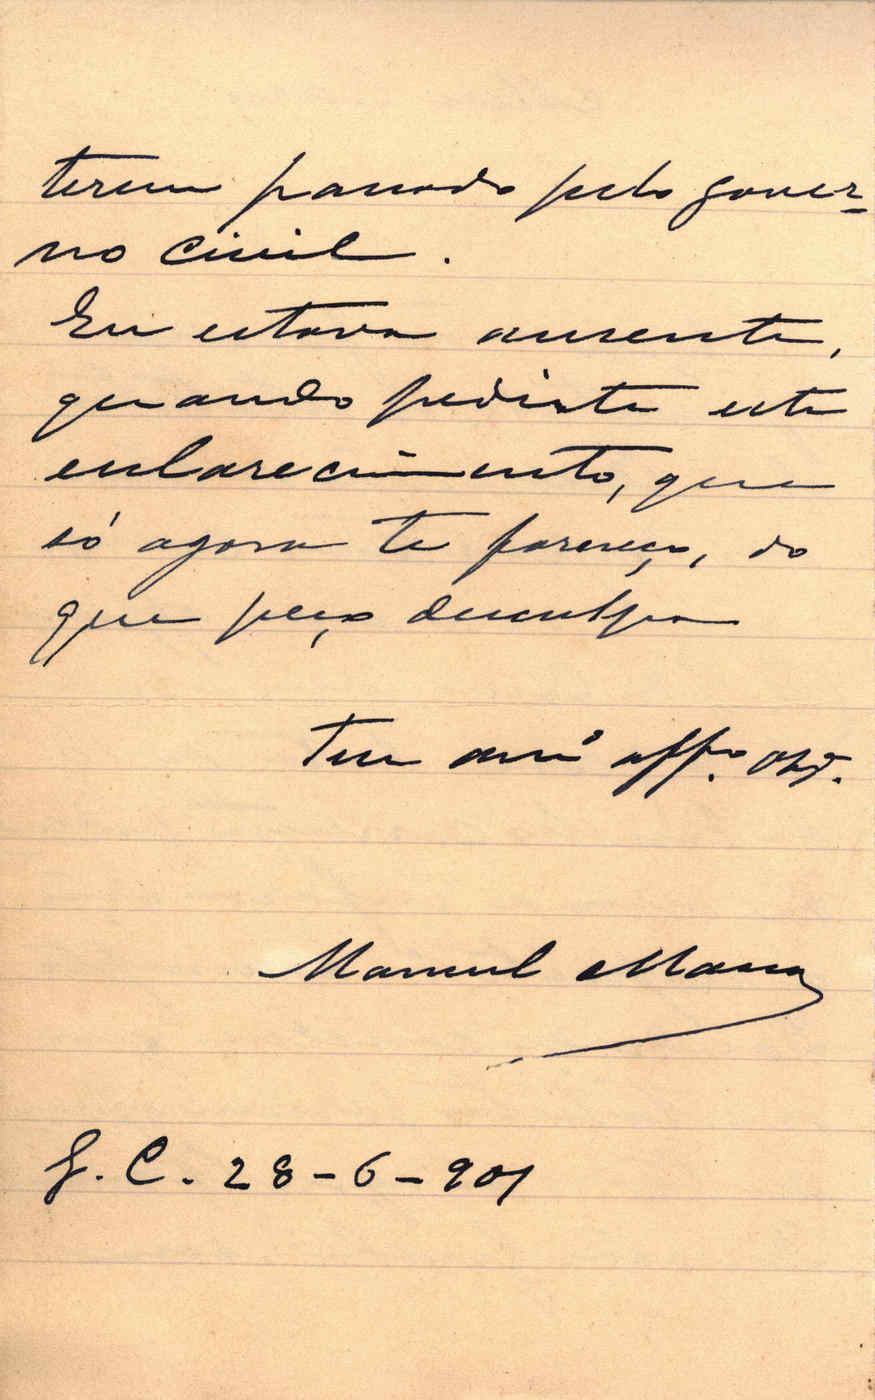 terem passado pelo gover-
no civil.
Eu estava ausente,
quando pediste este
esclarecimento, que
só agora te forneço, do
que peço desculpa
Teu amº affº obº.
Manuel
G. C. 28-6-901